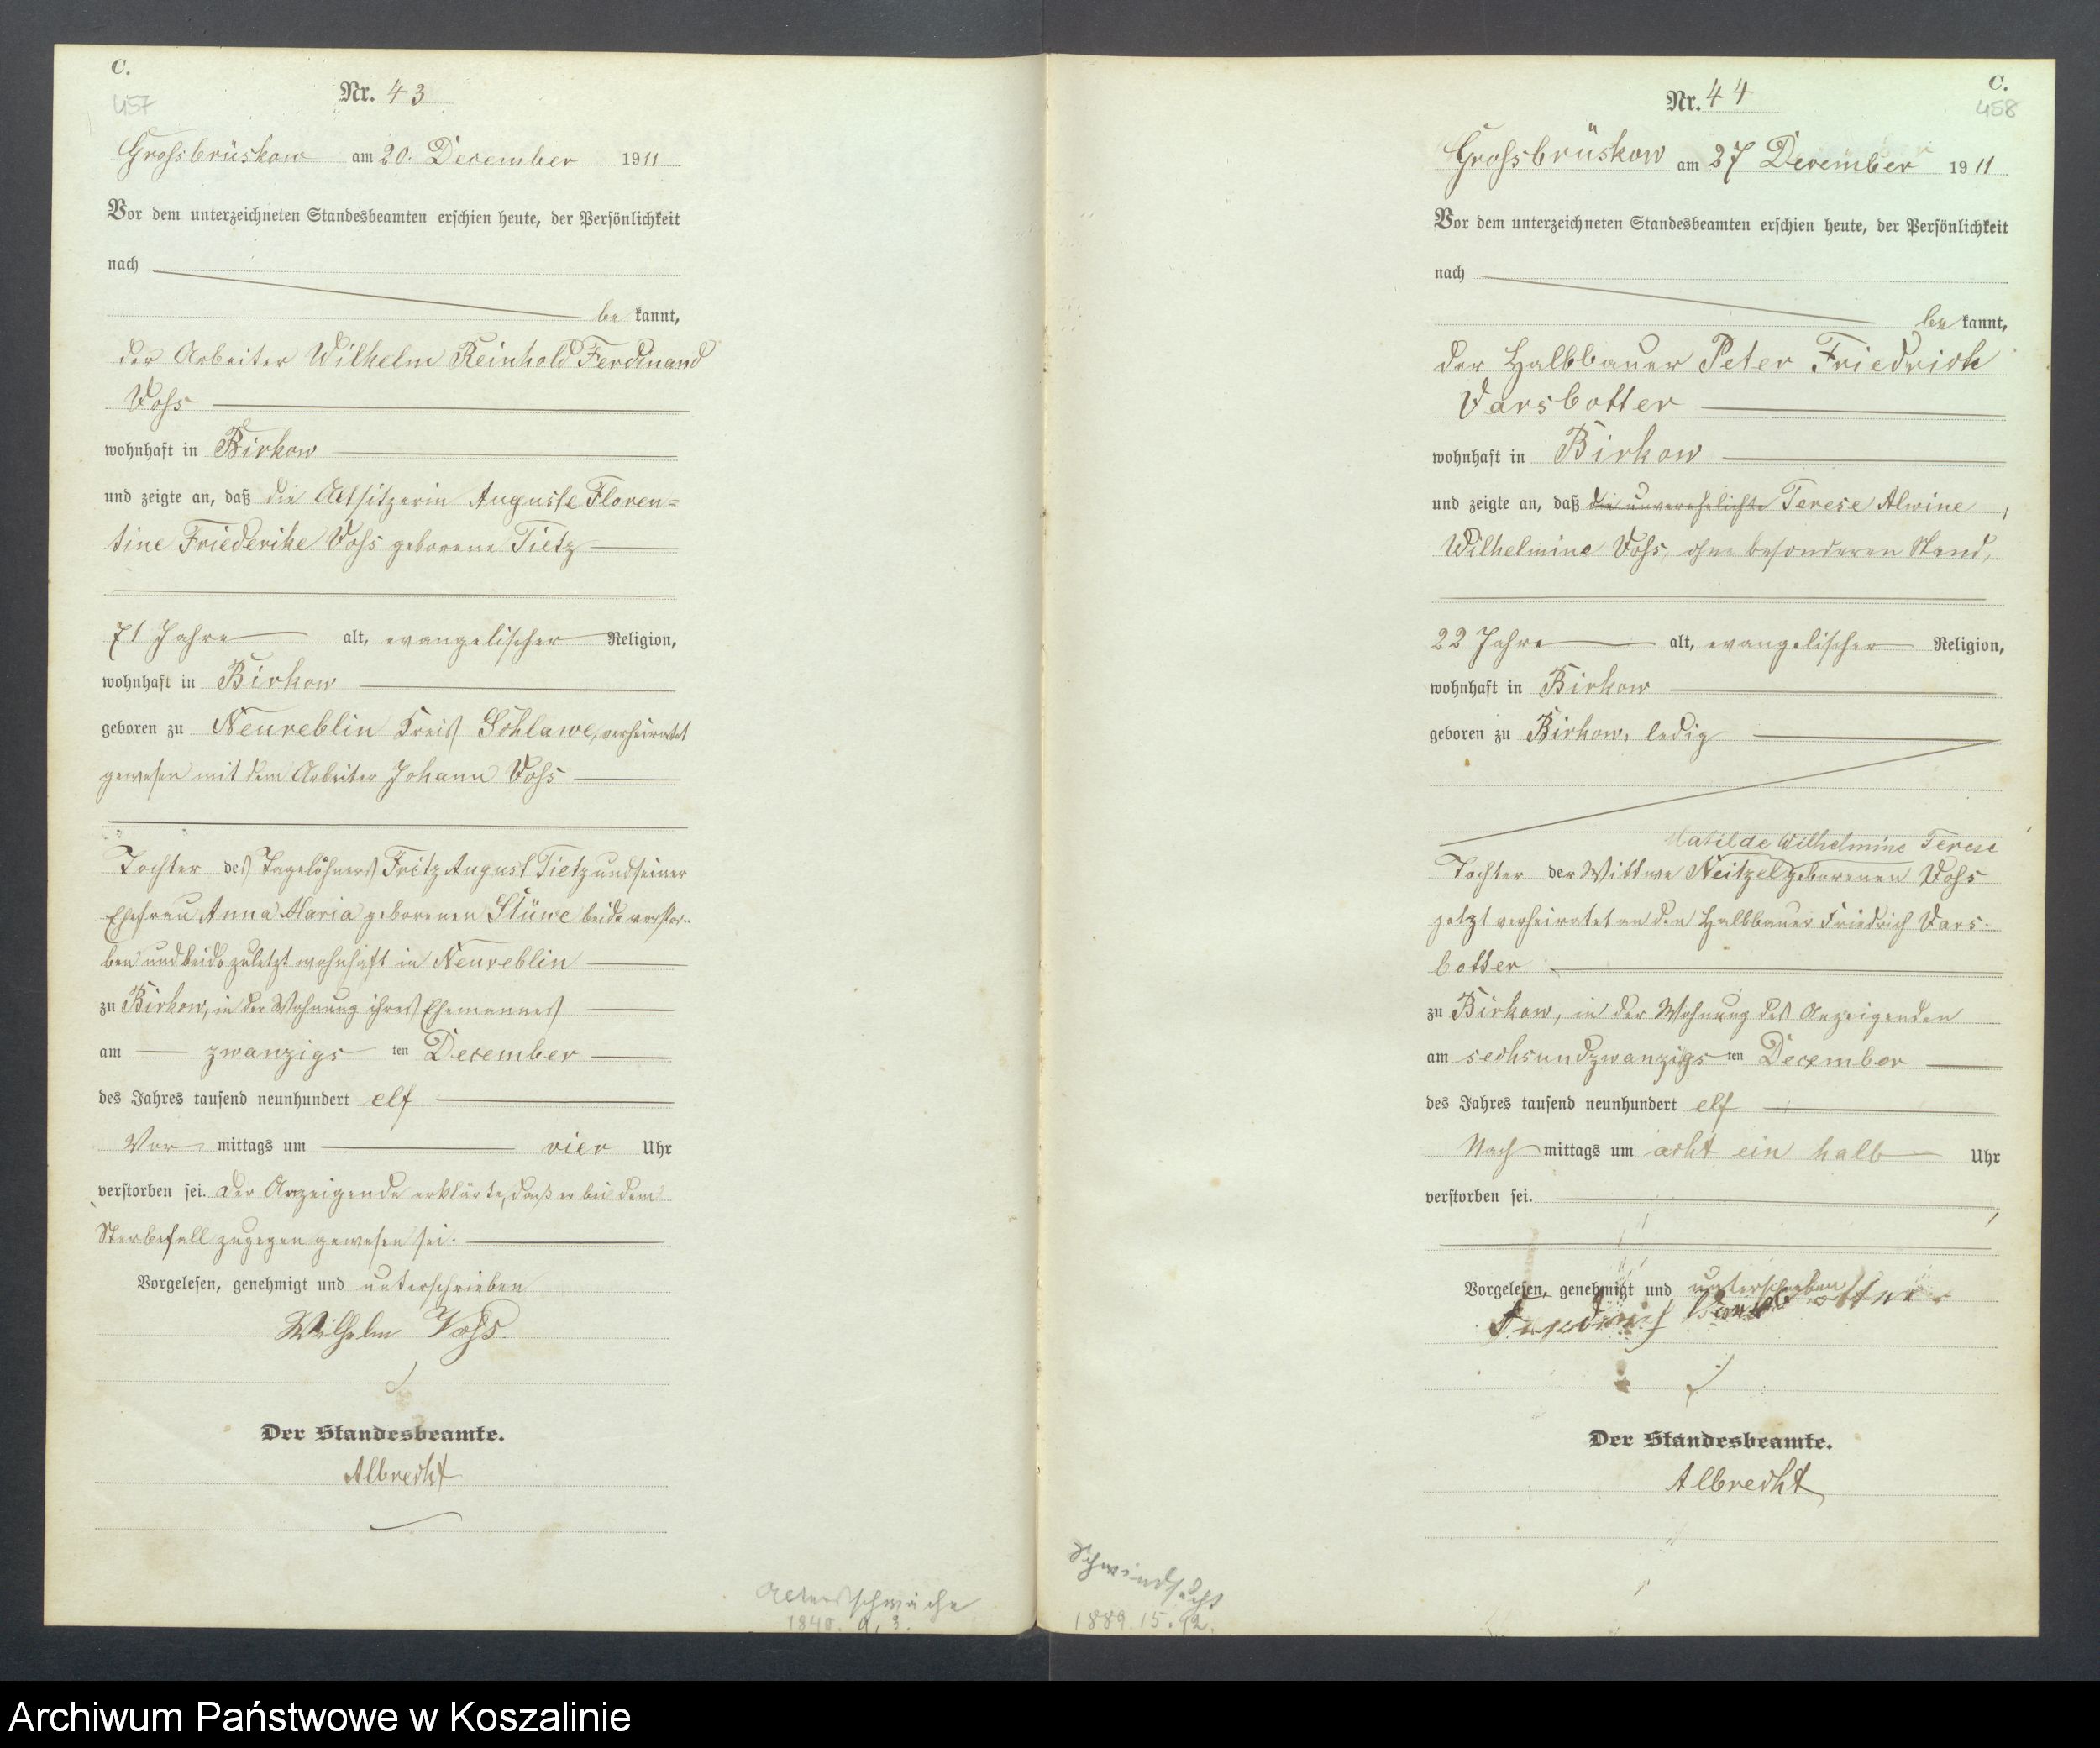 C.
457
Nr. 43
Grossbrüskow am 20. December 1911
Vor dem unterzeichneten Standesbeamten erschien heute, der Persönlichkeit
nach
be kannt,
der Arbeiter Wilhelm Reinhold Ferdinand
Voss
wohnhaft in Birkow
und zeigte an, daß die Altsitzerin Auguste Floren=
tine Friederike Voss geborene Tietz
71 Jahre alt, evangelischer Religion,
wohnhaft in Birkow
geboren zu Neureblin Kreis Schlawe, verheiratet
gewesen mit dem Arbeiter Johann Voss
Tochter des Tagelöhners Fritz August Tietz und seiner
Ehefrau Anna Maria geborenen Stüwe beide verstor-
ben und beide zuletzt wohnhaft in Neureblin
zu Birkow, in der Wohnung ihres Ehemannes
am zwanzigs ten December
des Jahres tausend neunhundert elf
Vor mittags um vier Uhr
verstorben sei. Der Anzeigende erklärte, daß er bei dem
Sterbefall zugegen gewesen sei.
Vorgelesen, genehmigt und unterschrieben
Wilhelm Voss.
Der Standesbeamte.
Albrecht
Altersschwäche
1840. 9. 3.
C.
458
Nr. 44
Grossbrüskow am 27 December 1911
Vor dem unterzeichneten Standesbeamten erschien heute, der Persönlichkeit
nach
be kannt,
der Halbbauer Peter Friedrich
Varsbotter
wohnhaft in Birkow
und zeigte an, daß die unverehelichte Terese Alwine
Wilhelmine Voss, ohne besonderen Stand,
22 Jahre alt, evangelischer Religion,
wohnhaft in Birkow
geboren zu Birkow, ledig
Matilde Wilhelmine Terese
Tochter der Wittwe Neitzel geborenen Voss
jetzt verheiratet an den Halbbauer Friedrich Vars-
botter
zu Birkow, in der Wohnung des Anzeigenden
am sechsundzwanzigs ten December
des Jahres tausend neunhundert elf
Nach mittags um acht ein halb Uhr
verstorben sei.
Vorgelesen, genehmigt und unterschrieben
Friedrich
Der Standesbeamte.
Albrecht
Schwindsucht
1889. 15. 12.
Archiwum Państwowe w Koszalinie